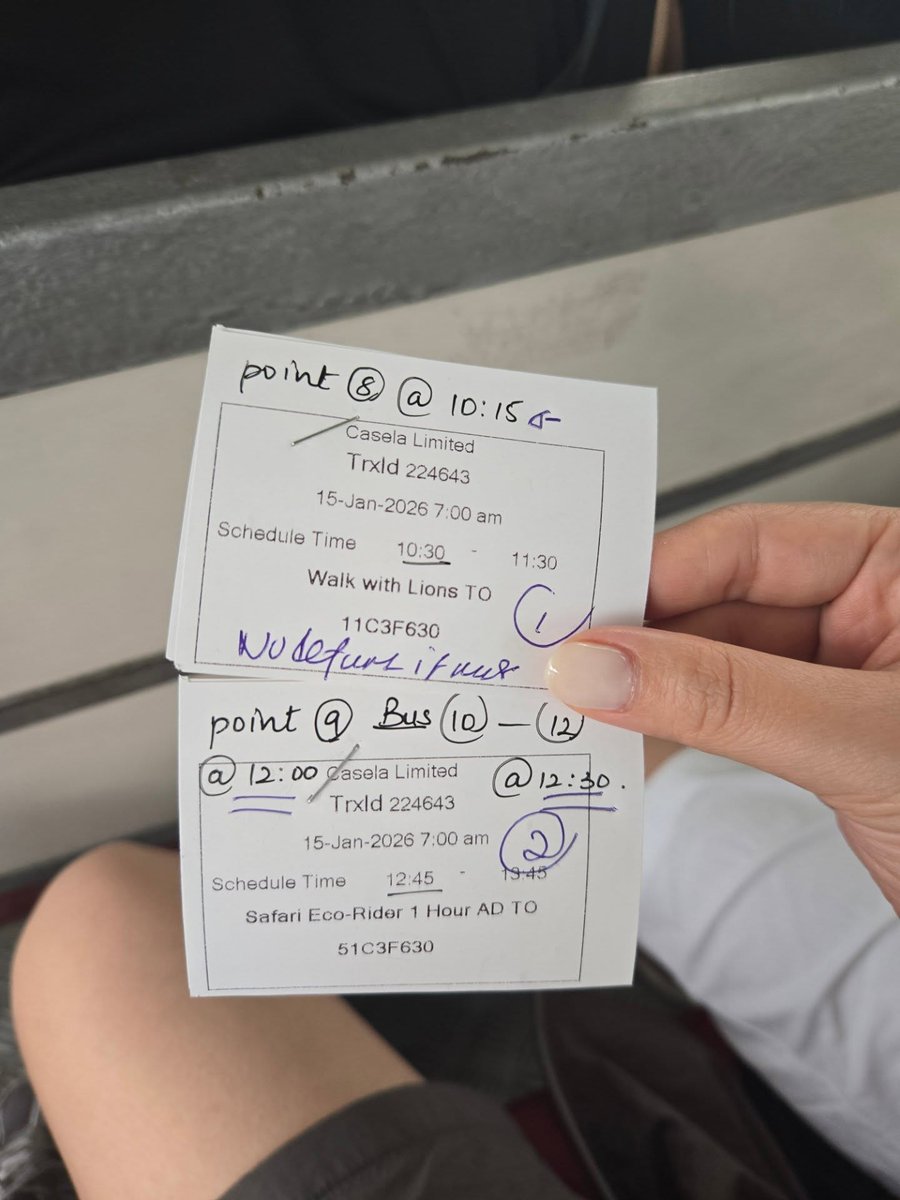 point 8 @ 10:15
Casela Limited
TrxId 224643
15-Jan-2026 7:00 am
Schedule Time 10:30 - 11:30
Walk with Lions TO
1
11C3F630
point 9 Bus 10 – 12
@ 12:00 Casela Limited @ 12:30.
TrxId 224643
15-Jan-2026 7:00 am
2
Schedule Time 12:45 - 13:45
Safari Eco-Rider 1 Hour AD TO
51C3F630